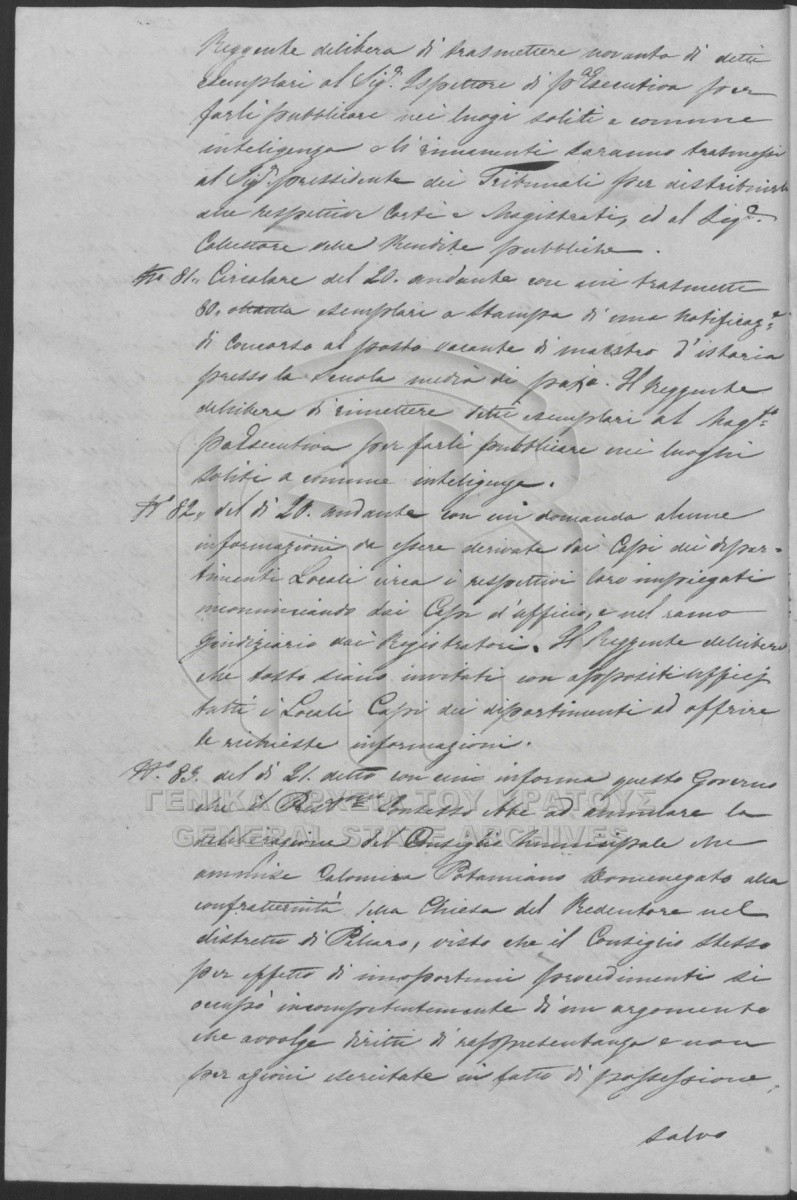 Reggente delibera di trasmettere novanta di detti
esemplari al Sig.r Ispettore di pa Esecutiva per
farli pubblicare nei luogi soliti a comune
inteligenza e li rimanenti saranno trasmessi
al Sig.r pressidente dei Tribunali per distribuirli
alle respettive Corti e Magistrati, ed al Sig.r
Colettore delle Rendite pubbliche.
No 81„ Circolare del 20. andante con cui trasmette
80. ottanta esemplari a stampa di una notificaz.e
di concorso al posto vacante di maestro d'istoria
presso la scuola media di paxo. Il Reggente
delibera di rimettere detti esemplari al Mag.to
pa Esecutiva per farli pubblicare nei luoghi
soliti a comune inteligenza.
No 82„ del dì 20. andante con cui domanda alcune
informazioni da essere derivate dai Capi dei dipar-
timenti Locali circa i respettivi loro impiegati
incominciando dai Capi d'officio, e nel ramo
giudiziario dai Registratori. Il Reggente delibera
che tosto siano invitati con appositi ufficj
tutti i Locali Capi dei dipartimenti ad offrire
le richieste informazioni.
No 83. del dì 21. detto con cui informa questo Governo
che il contesso ad annulare la
deliberazione del Consiglio Municipale che
ammise Calomira Potamiano alla
confratternità della Chiesa del Redentore nel
distretto di Pilaro, visto che il Consiglio stesso
per effetto di inopportuni procedimenti si
occupò incompetentemente di un argomento
che avvolge diritti di rappresentanza e non
per azioni esercitate in fatto di possessione,
salvo
ΓΕΝΙΚΑ ΑΡΧΕΙΑ ΤΟΥ ΚΡΑΤΟΥΣ
GENERAL STATE ARCHIVES